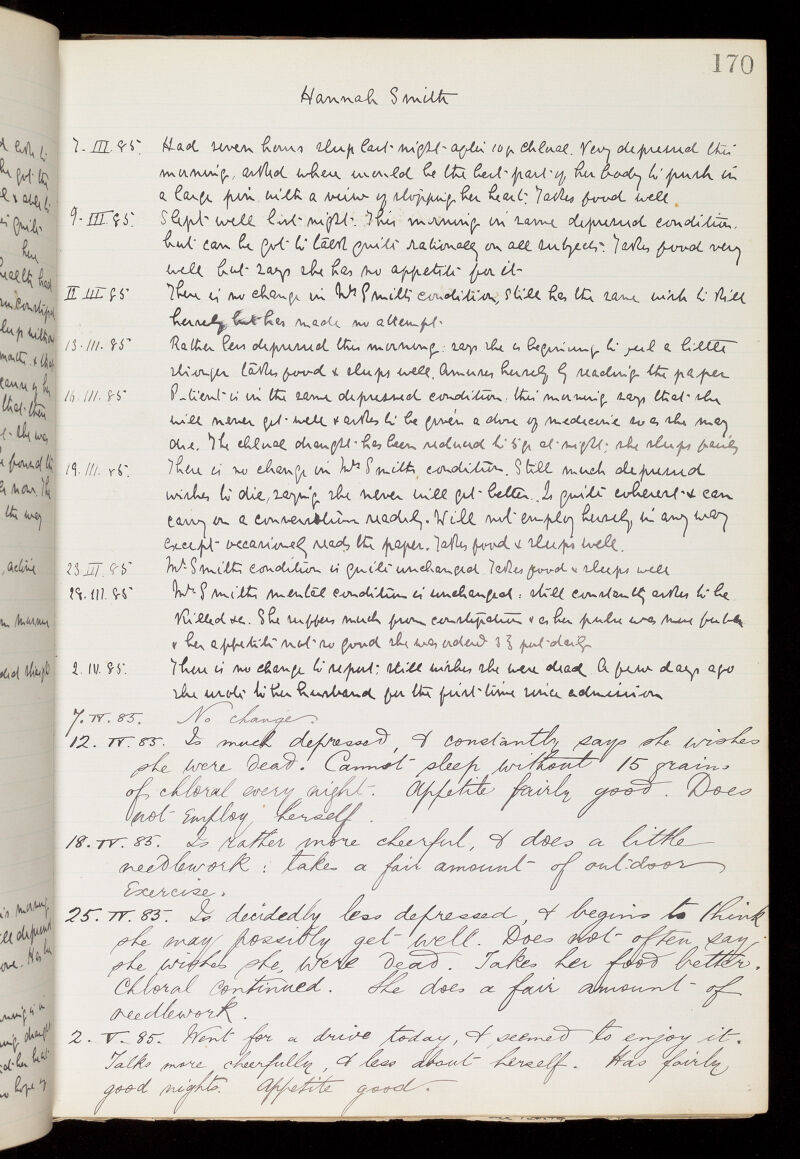 170
Hannah Smith
7. III. 85. Had seven hours sleep last night after 10 gr chloral. Very depressed this
morning, asked where would be the best part of her body to push in
a large pin with a view of stopping her heart. Takes food well
9. III. 85. Slept well last night. This morning in same depressed condition.
but can be got to talk quite rationally on all subjects. Takes food very
well but says she has no appetite for it
II III 85 There is no change in Mrs Smiths condition, still has the same wish to kill
herself but has made no attempt.
13. III. 85 Rather less depressed this morning: says she is beginning to feel a little
stronger takes food & sleeps well. Amuses herself by reading the paper
16. III. 85 Patient is in the same depressed condition. this morning says that she
will never get well & asks to be given a dose of medicine so as she may
die. The chloral draught has been reduced to 5 gr at night; she sleeps fairly
19. III. 85. There is no change in Mrs Smiths condition. Still much depressed
wishes to die, saying she never will get better. Is quite coherent & can
carry on a conversation readily. Will not employ herself in any way
except occasionally reads the paper. Takes food & sleeps well.
23 III. 85 Mrs Smiths condition is quite unchanged Takes food & sleeps well
28. III. 85 Mrs Smiths mental condition is unchanged: still constantly asks to be
killed &c. She suffers much from constipation & as her pulse was more feeble
& her appetite not so good she was ordered port daily
2. IV. 85. There is no change to report; still wishes she were dead. A few days ago
she wrote to her husband for the first time since admission
7. IV. 85. No change.
12. IV. 85. Is much depressed, & constantly says she wishes
she were dead. Cannot sleep without 15 grains
of chloral every night. Appetite fairly good. Does
not employ herself.
18. IV. 85. Is rather more cheerful, & does a little
needlework: takes a fair amount of outdoor
Exercise.
25. IV. 85. Is decidedly less depressed, & begins to think
she may possibly get well. Does not often say
she wishes she were dead. Takes her food better.
Chloral continued. She does a fair amount of
needlework.
2. V. 85. Went for a drive today, & seemed to enjoy it.
Talks more cheerfully, & less about herself. Has fairly
good nights. Appetite good.